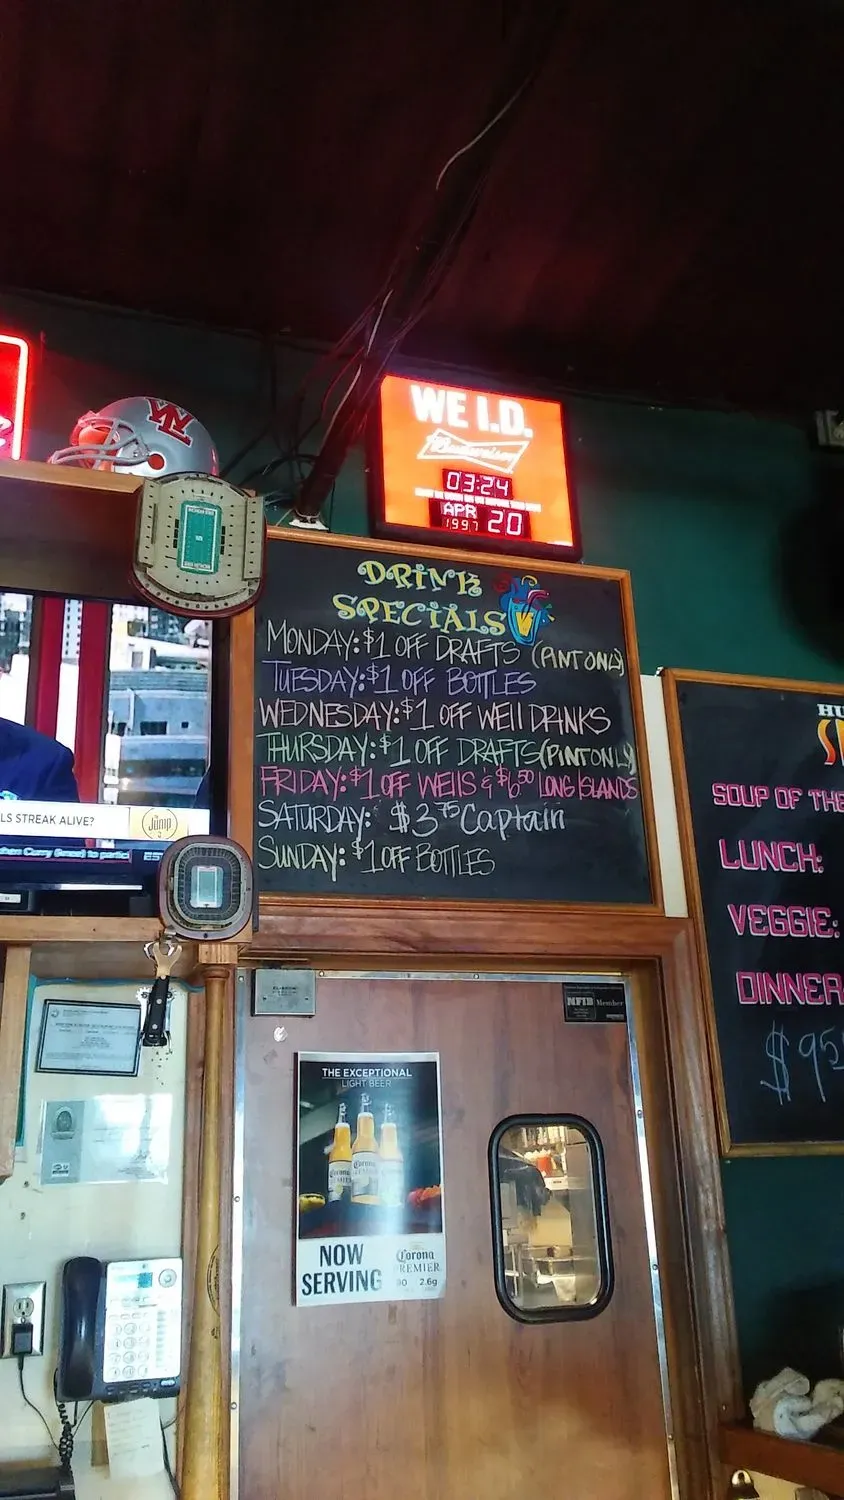 WE I.D.
Budweiser
03:24
APR 20
1997
WL
DRINK
SPECIALS
MONDAY: $1 OFF DRAFTS (PINT ONLY)
TUESDAY: $1 OFF BOTTLES
WEDNESDAY: $1 OFF WEll DRINKS
THURSDAY: $1 OFF DRAFTS (PINT ONLY)
FRIDAY: $1 OFF WEllS & $6.50 LONG ISLANDS
SATURDAY: $3.75 Captain
SUNDAY: $1 OFF BOTTLES
LS STREAK ALIVE?
Jump
Curry (knee) to partici
HU
SOUP OF THE
LUNCH:
VEGGIE:
DINNER
$95
NFIB Member
THE EXCEPTIONAL
LIGHT BEER
NOW
SERVING
Corona
PREMIER
90 2.6g